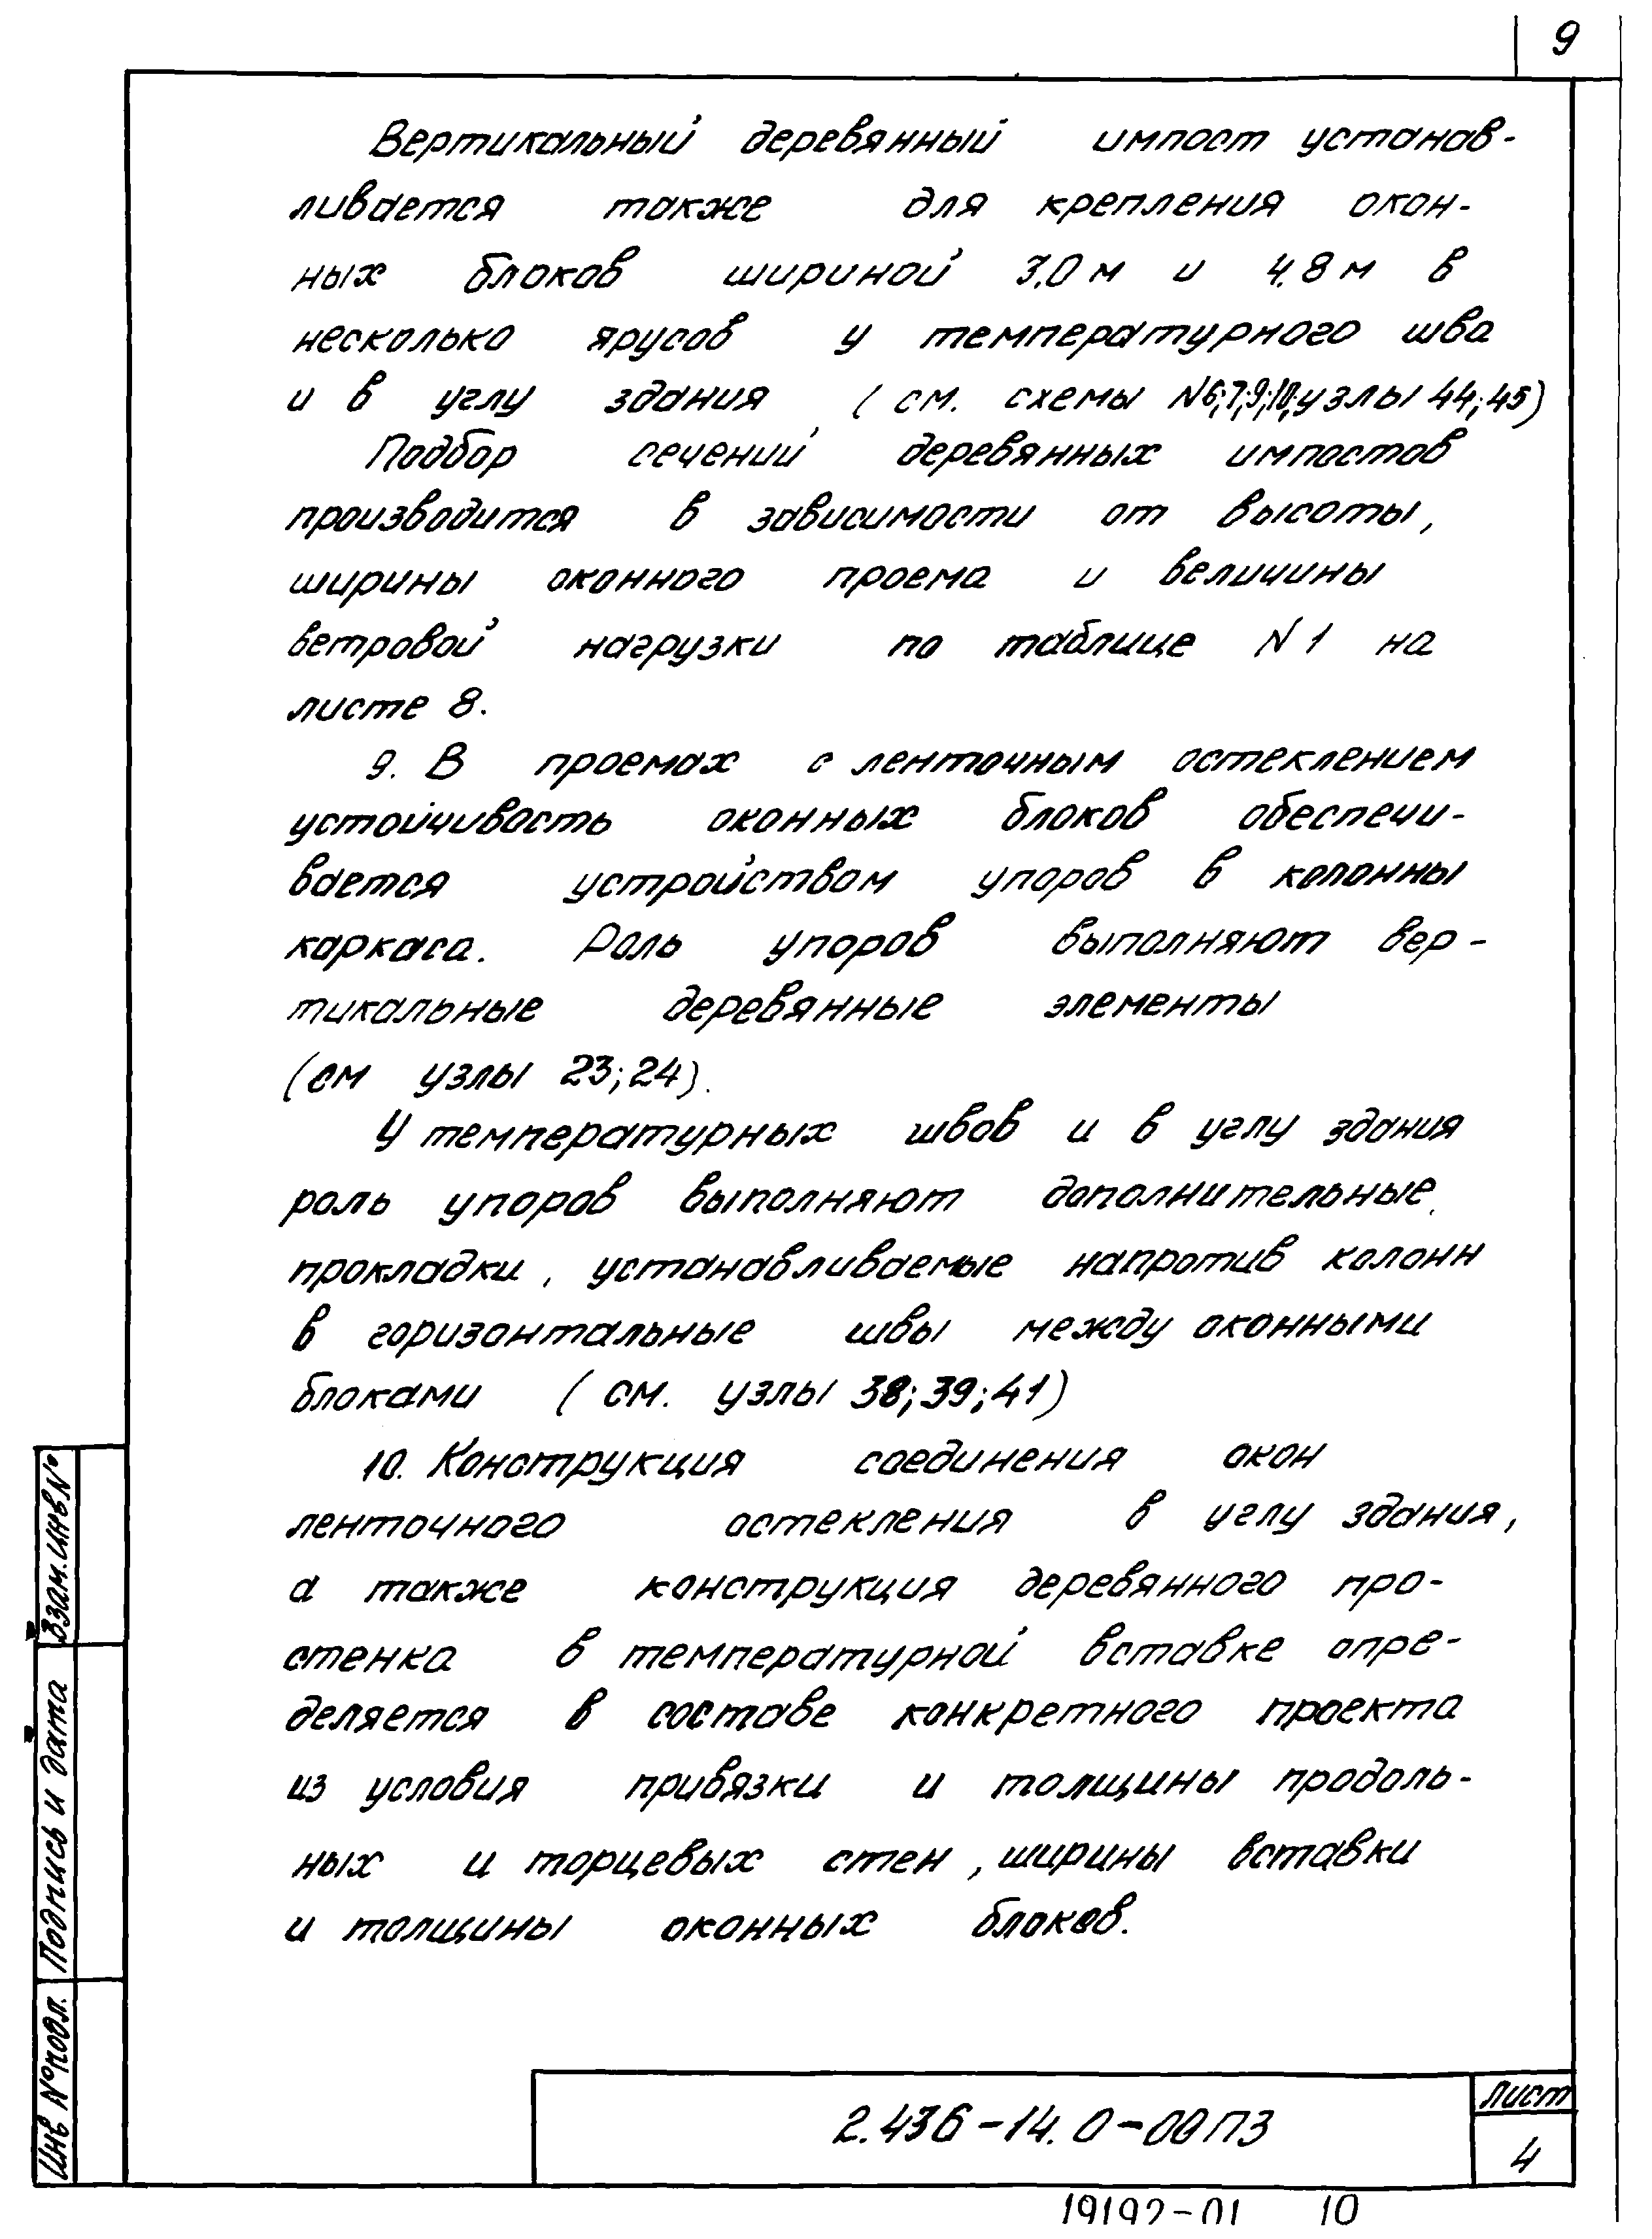 9
Вертикальный деревянный импост устанав-
ливается также для крепления окон-
ных блоков шириной 3,0 м и 4,8 м в
несколько ярусов у температурного шва
и в углу здания (см. схемы N6;7;9;10; узлы 44;45)
Подбор сечений деревянных импостов
производится в зависимости от высоты,
ширины оконного проема и величины
ветровой нагрузки по таблице N 1 на
листе 8.
9. В проемах с ленточным остеклением
устойчивость оконных блоков обеспечи-
вается устройством упоров в колонны
каркаса. Роль упоров выполняют вер-
тикальные деревянные элементы
(см узлы 23;24).
У температурных швов и в углу здания
роль упоров выполняют дополнительные
прокладки, устанавливаемые напротив колонн
в горизонтальные швы между оконными
блоками (см. узлы 38;39;41)
10. Конструкция соединения окон
ленточного остекления в углу здания,
а также конструкция деревянного про-
стенка в температурной вставке опре-
деляется в составе конкретного проекта
из условия привязки и толщины продоль-
ных и торцевых стен, ширины вставки
и толщины оконных блоков.
Взам. инв N°
Подпись и дата
Инв N° подл.
2.436-14.0-00ПЗ
Лист
4
19192-01 10